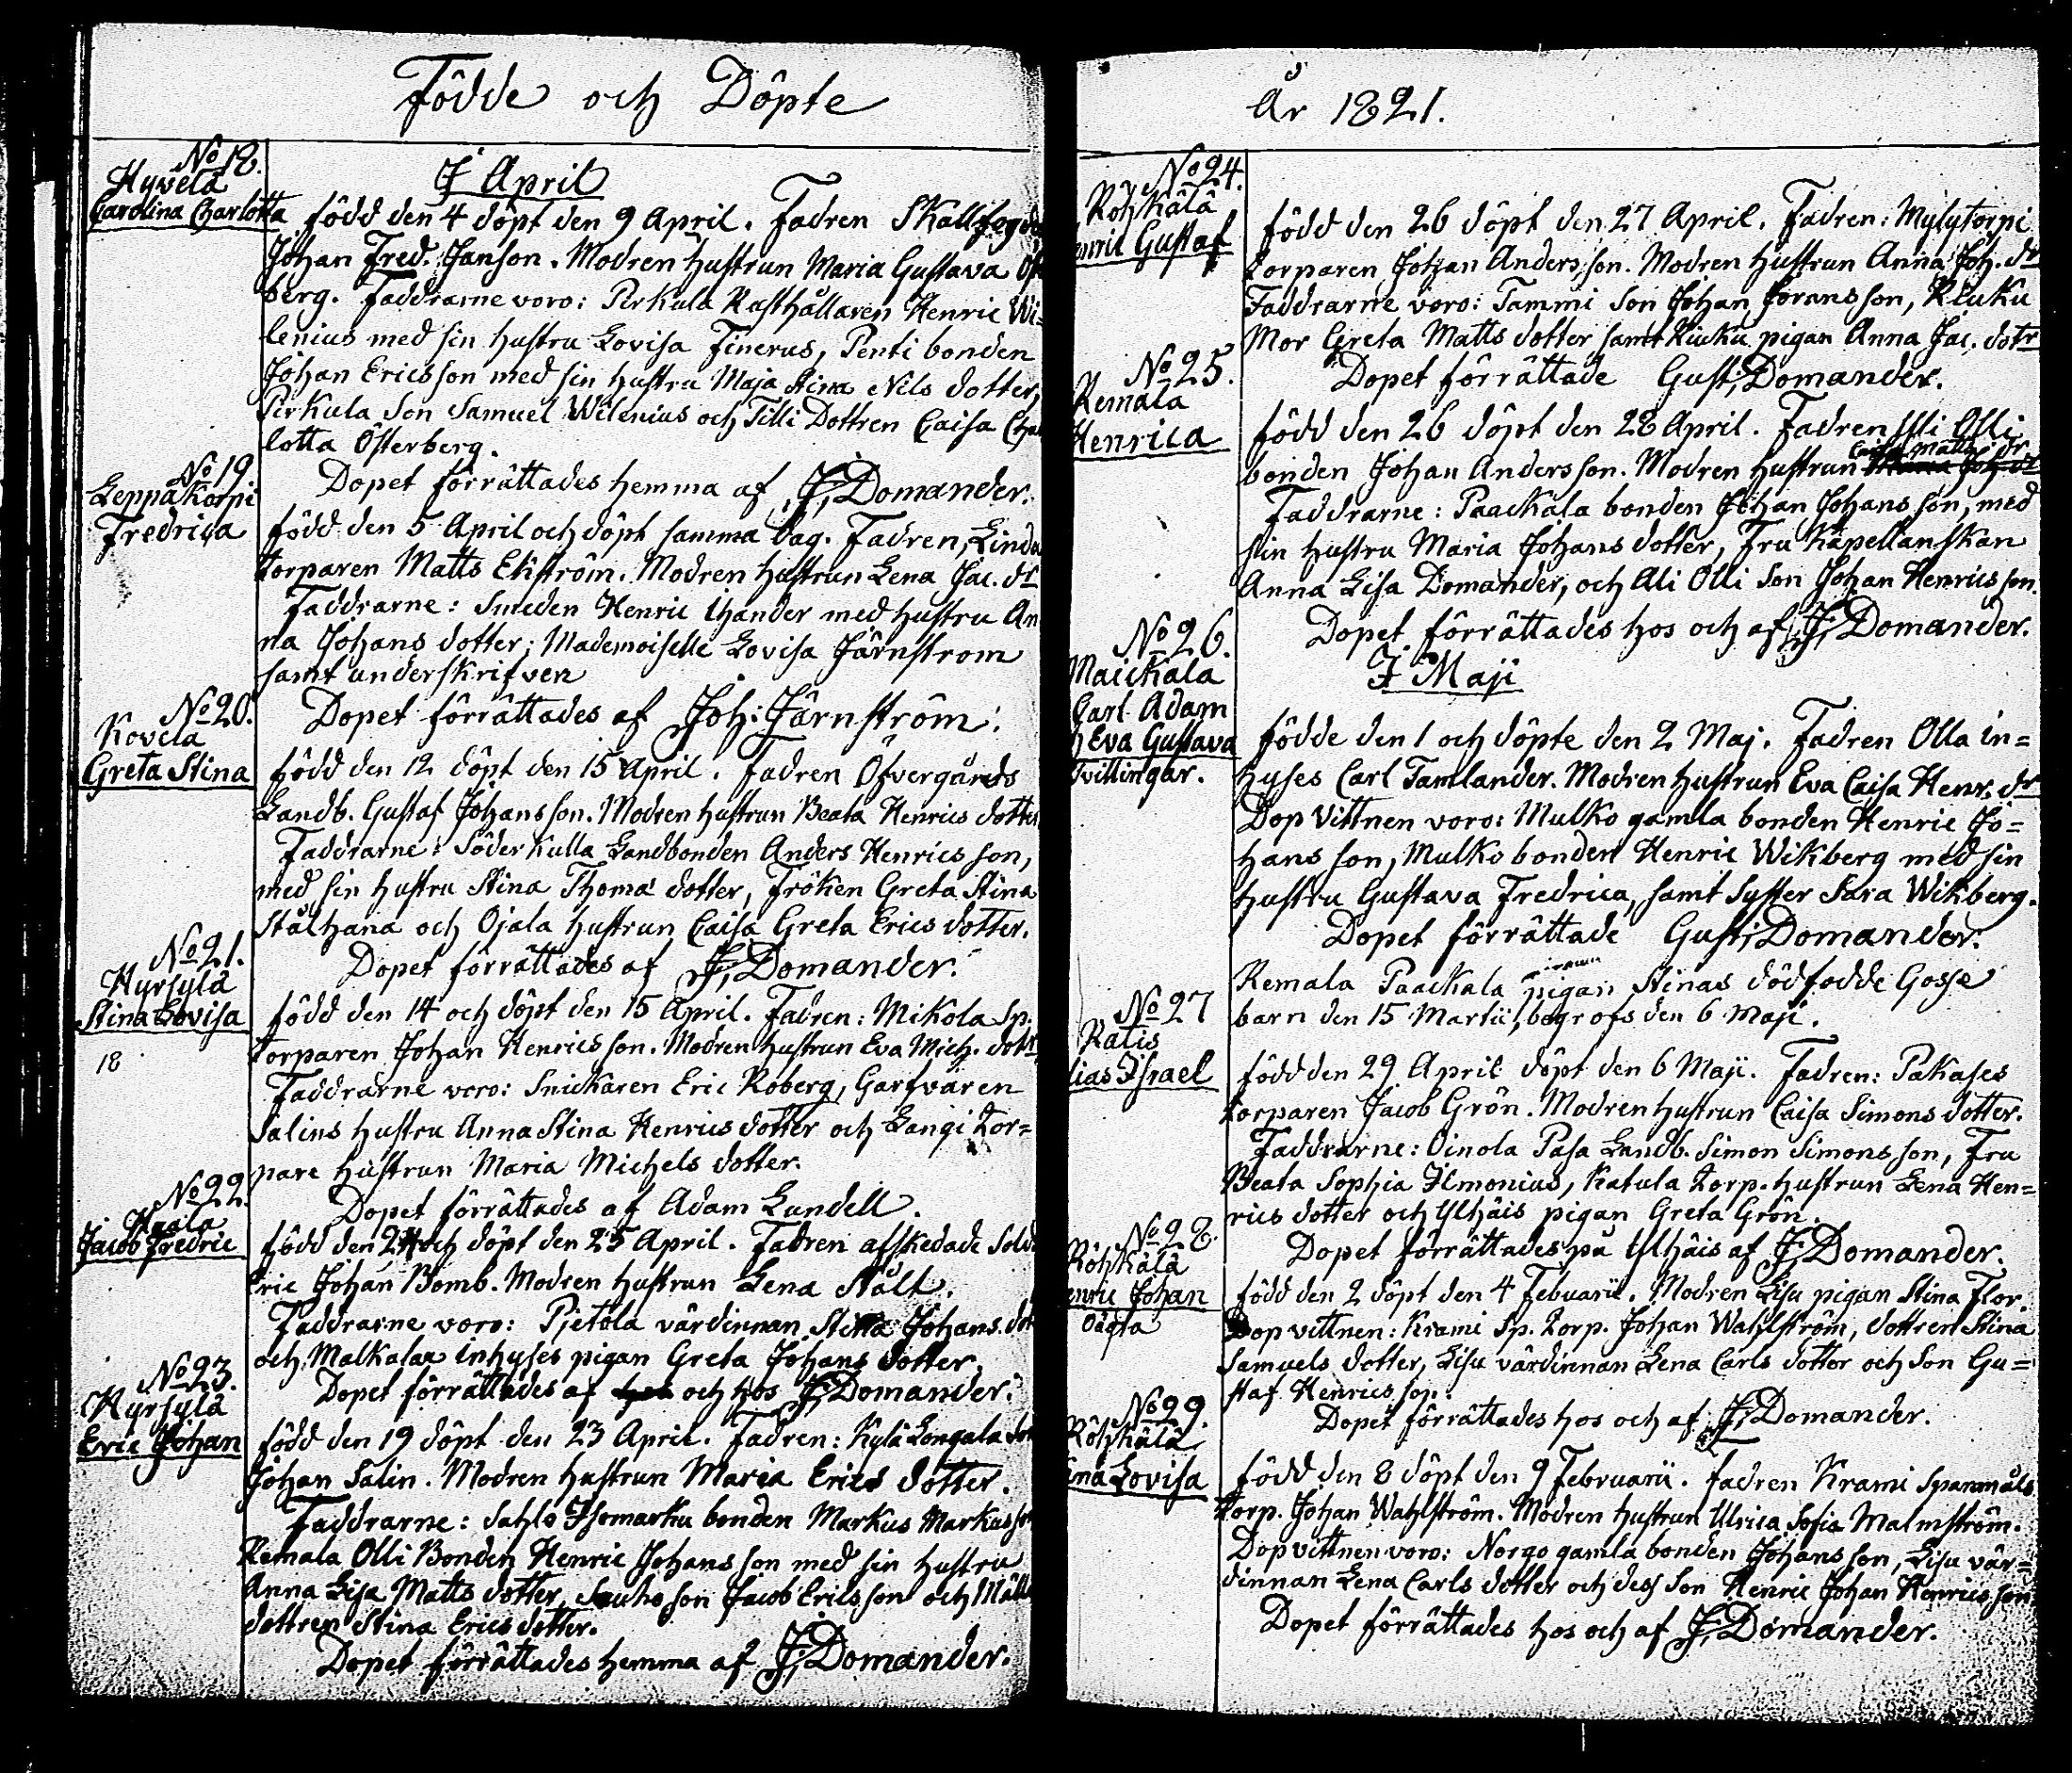 Födde och Döpte
No 18.
Hyvelä
Carolina Charlotta
I April
född den 4 döpt den 9 April. Fadren Skallfogde
Johan Fred. Janson. Modren hustrun Maria Gustava Öst
berg. Faddrarne voro: Pirkula Rusthållaren Henric Wi=
lenius med sin hustru Lovisa Finerus, Penti bonden
Johan Ericsson med sin hustru Maja Stina Nils dotter,
Pirkula Son Samuel Wilenius och Tilli Dottren Caisa Char
lotta Österberg.
Dopet förrättades hemma af J; Domander.
No 19
Leppäkorpi
Fredrica
född den 5 April och döpt samma dag. Fadren, Linda
torparen Matts Ekström. Modren hustrun Lena Jac. dr
Faddrarne: Smeden Henric Ihander med hustru An
na Johans dotter; Mademoiselle Lovisa Järnstrom
samt underskrifven
Dopet förrättades af Joh: Järnström:
No 20.
Kovela
Greta Stina
född den 12 döpt den 15 April. Fadren Öfvergårds
Landb. Gustaf Johansson. Modren hustrun Beata Henrics dotter
Faddrarne: Söderkulla Landbonden Anders Henrics son,
med sin hustru Stina Thoma dotter, Fröken Greta Stina
Stålhana och Ojala hustrun Caisa Greta Erics dotter.
Dopet förrättades af J; Domander.
No 21.
Hyrsylä
Stina Lovisa
18
född den 14 och döpt den 15 April. Fadren: Mikola Sp.
torparen Johan Henrics son. Modren hustrun Eva Mich. dotr
Faddrarne voro: Snickaren Eric Roberg, Garfvaren
Salins hustru Anna Stina Henrics dotter och Langi tor=
pare hustrun Maria Michels dotter.
Dopet förrättades af Adam Lundell.
No 22.
Jacob Fredric
född den 24 och döpt den 25 April. Fadren afskedade Sold
Eric Johan Bomb. Modren hustrun Lena Stålt.
Faddrarne voro: Pjetola värdinnan Stina Johans. dot
och Malkalax inhyses pigan Greta Johans dotter.
Dopet förrättades af och hos J; Domander.
No 23.
Hyrsylä
Eric Johan
född den 19 döpt den 23 April. Fadren: Kylä Longala
Johan Salin. Modren hustrun Maria Erics dotter.
Faddrarne: Sahlo Isomarku bonden Markus Markusson
Remala Olli Bonden Henric Johans son med sin hustru
Anna Lisa Matts dotter, Sauho son Jacob Ericsson och
dottren Stina Erics dotter.
Dopet förrättades hemma af J; Domander.
År 1821.
No 24.
Röhkälä
enric Gustaf
född den 26 döpt den 27 April. Fadren: Mylytorpi
torparen Johan Andersson. Modren hustrun Anna Joh. dr
Faddrarne voro: Tammi Son Johan Joransson, Kiuku
Mor Greta Matts dotter samt Kiuku pigan Anna Jac. dotr
Dopet förrättade Gust; Domander.
No 25.
Remala
Henrica
född den 26 döpt den 28 April. Fadren Ali Olli
Caisa Matts dr
bonden Johan Andersson. Modren hustrun
Faddrarne: Paackala bonden Johan Johans son, med
sin hustru Maria Johans dotter, Fru Kapellanskan
Anna Lisa Domander, och Ali Olli Son Johan Henrics son.
Dopet förrättades hos och af J; Domander.
I Maji
No 26.
Maickala
Carl Adam
h Eva Gustava
Tvillingar.
födde den 1 och döpte den 2 Maj. Fadren Olla in=
hyses Carl Tamlander. Modren hustrun Eva Caisa Henr. dr
Dop Vittnen voro: Mulko gamla bonden Henric Jo=
hans son, Mulko bonden Henric Wikberg med sin
hustru Gustava Fredrica, samt Syster Sara Wikberg.
Dopet förrättade Gust; Domander.
Remala Paackala pigan Stinas dödfodde Gosse
barn den 15 Martii, begrofs den 6 maji.
No 27
Ratis
lias Israel
född den 29 April döpt den 6 Maji. Fadren: Pakases
torparen Jacob Grön. Modren hustrun Caisa Simons dotter.
Faddrarne: Oinola Pasa Landb. Simon Simonsson, Fru
Beata Sophia Ilmonius, Katula torp. hustrun Lena Hen=
rics dotter och Ylhäis pigan Greta Grön.
Dopet förrättades på Ylhäis af J; Domander.
No 28.
Röhkälä
enric Johan
oäqta
född den 2 döpt den 4 Febuarii. Modren Lisu pigan Stina Flor.
Dop vittnen: Krami Sp. torp. Johan Wahlström, dottren Stina
Samuels dotter, Lisu värdinnan Lena Carls dotter och Son Gu=
staf Henrics son.
Dopet förrättades hos och af J; Domander.
No 29.
Röhkälä
ina Lovisa
född den 8 döpt den 9 Februarii. Fadren Krami Spannmåls
torp. Johan Wahlström. Modren hustrun Ulrica Sofia Malmström.
Dopvittnen voro: Norgo gamla bonden Johansson, Lisu vär=
dinnan Lena Carls dotter och dess Son Henric Johan Henricsson
Dopet förrättades hos och af J; Domander.